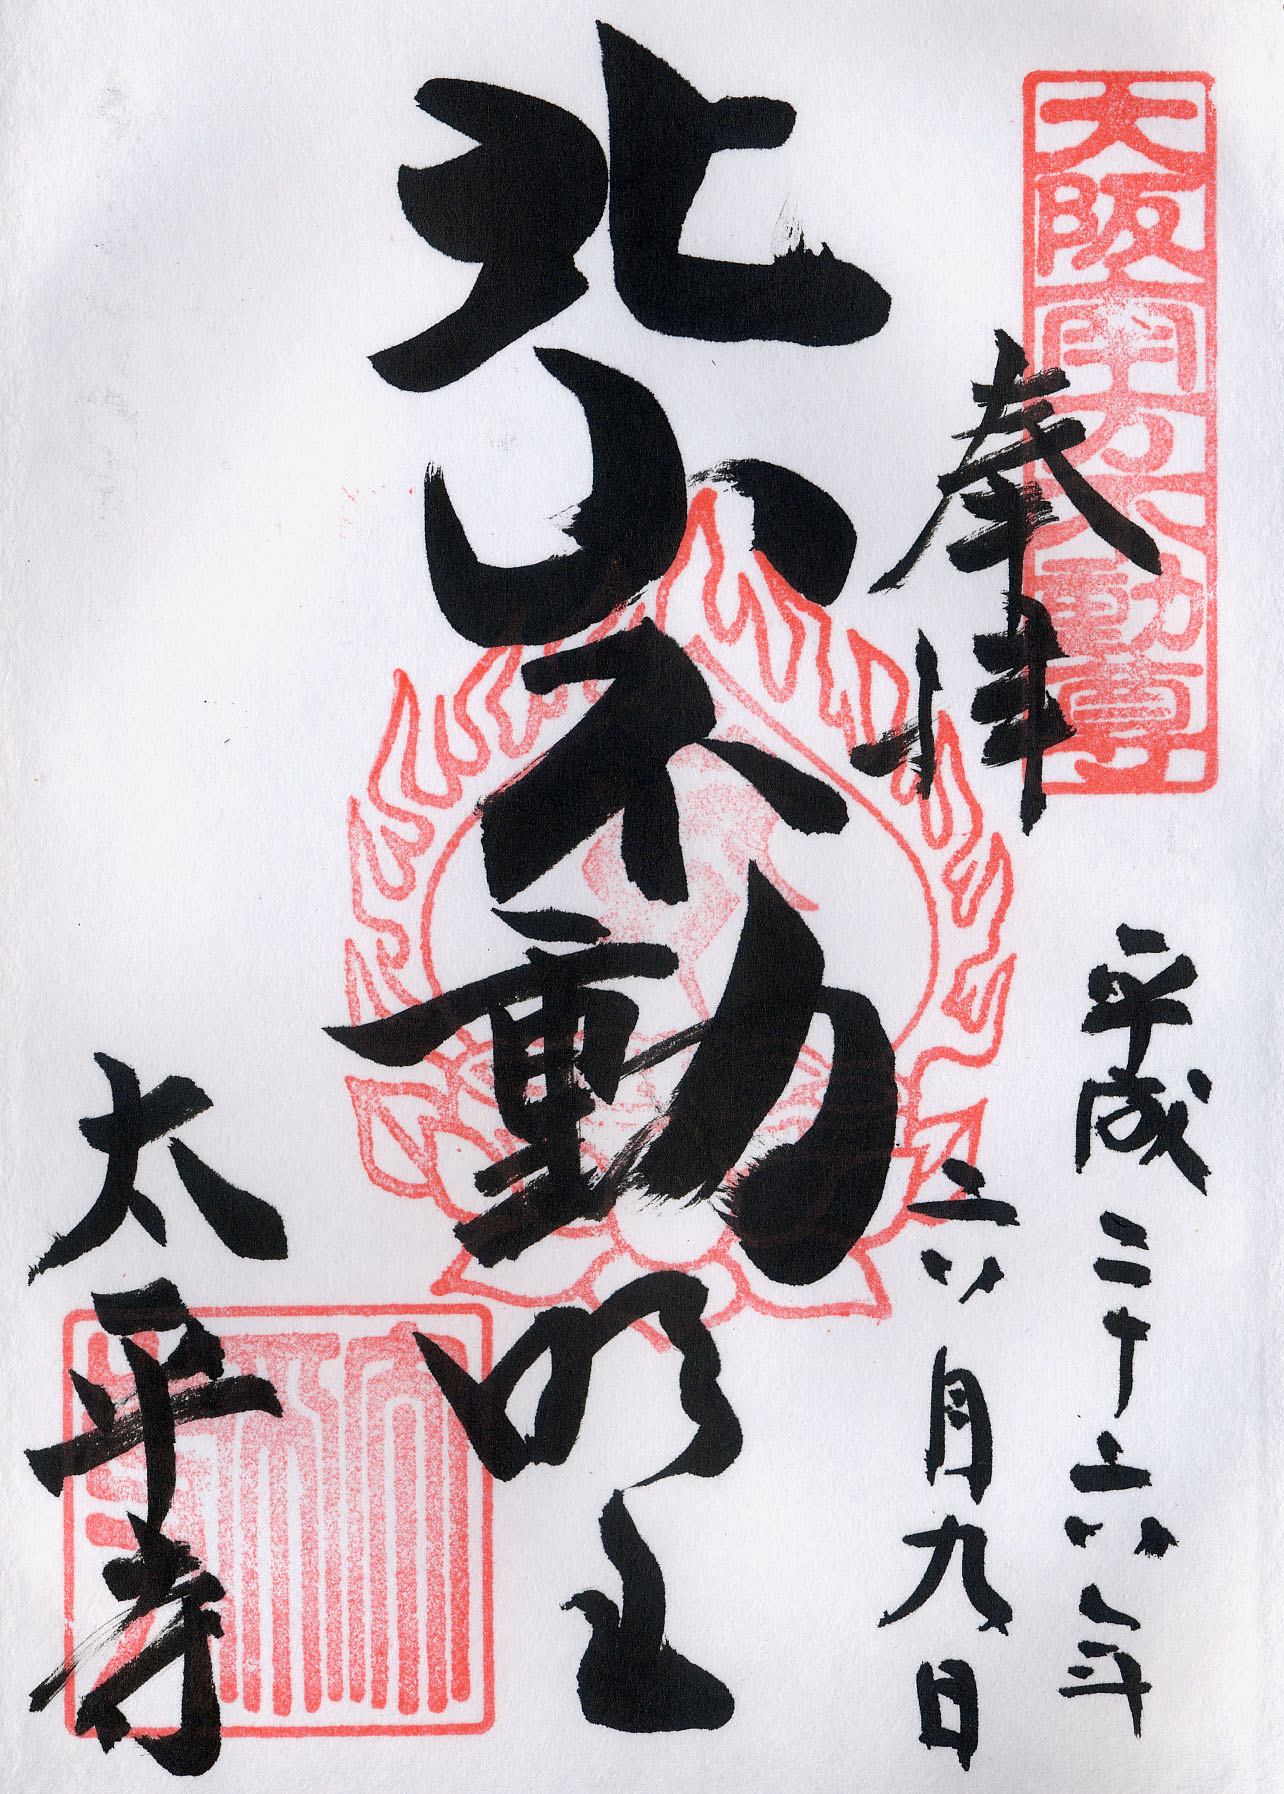 大阪南方不動尊
奉拝
平成二十六年
六月九日
北山不動明王
太平寺